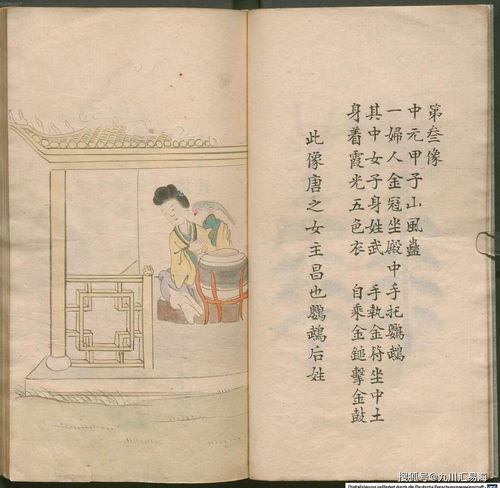 第叁像
中元甲子山風蠱
一婦人金冠坐殿中手托鸚鵡
其中女子身姓武 手執金符坐中土
身着霞光五色衣 自乘金鎚擊金鼓
此像唐之女主昌也鸚鵡后姓
搜狐号@九川汇易海
Digitalisierung gefördert durch die Deutsche Forschungsgemeinschaft